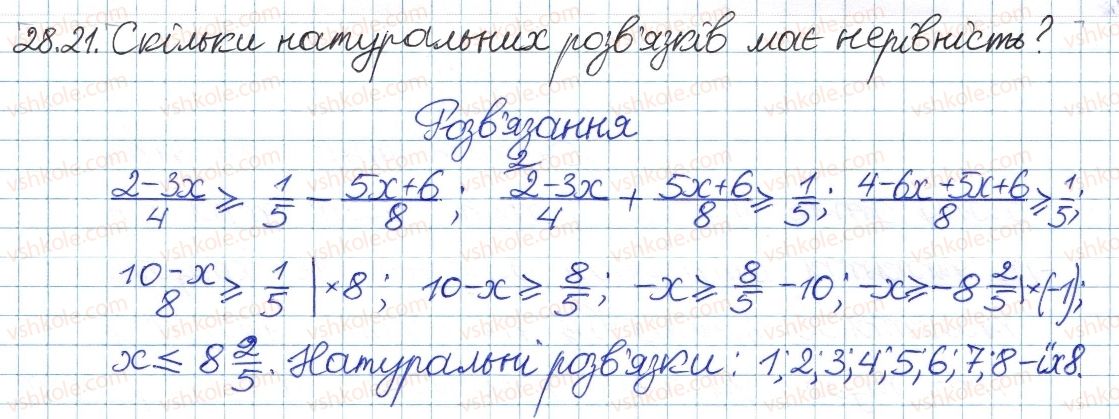 28.21. Скільки натуральних розв'язків має нерівність?
Розв'язання
(2-3x)/4 ≥ 1/5 - (5x+6)/8; ²(2-3x)/4 + (5x+6)/8 ≥ 1/5; (4-6x+5x+6)/8 ≥ 1/5;
(10-x)/8 ≥ 1/5 | ×8; 10-x ≥ 8/5; -x ≥ 8/5 -10; -x ≥ -8 2/5 | ×(-1);
x ≤ 8 2/5. Натуральні розв'язки: 1; 2; 3; 4; 5; 6; 7; 8 – їх 8.